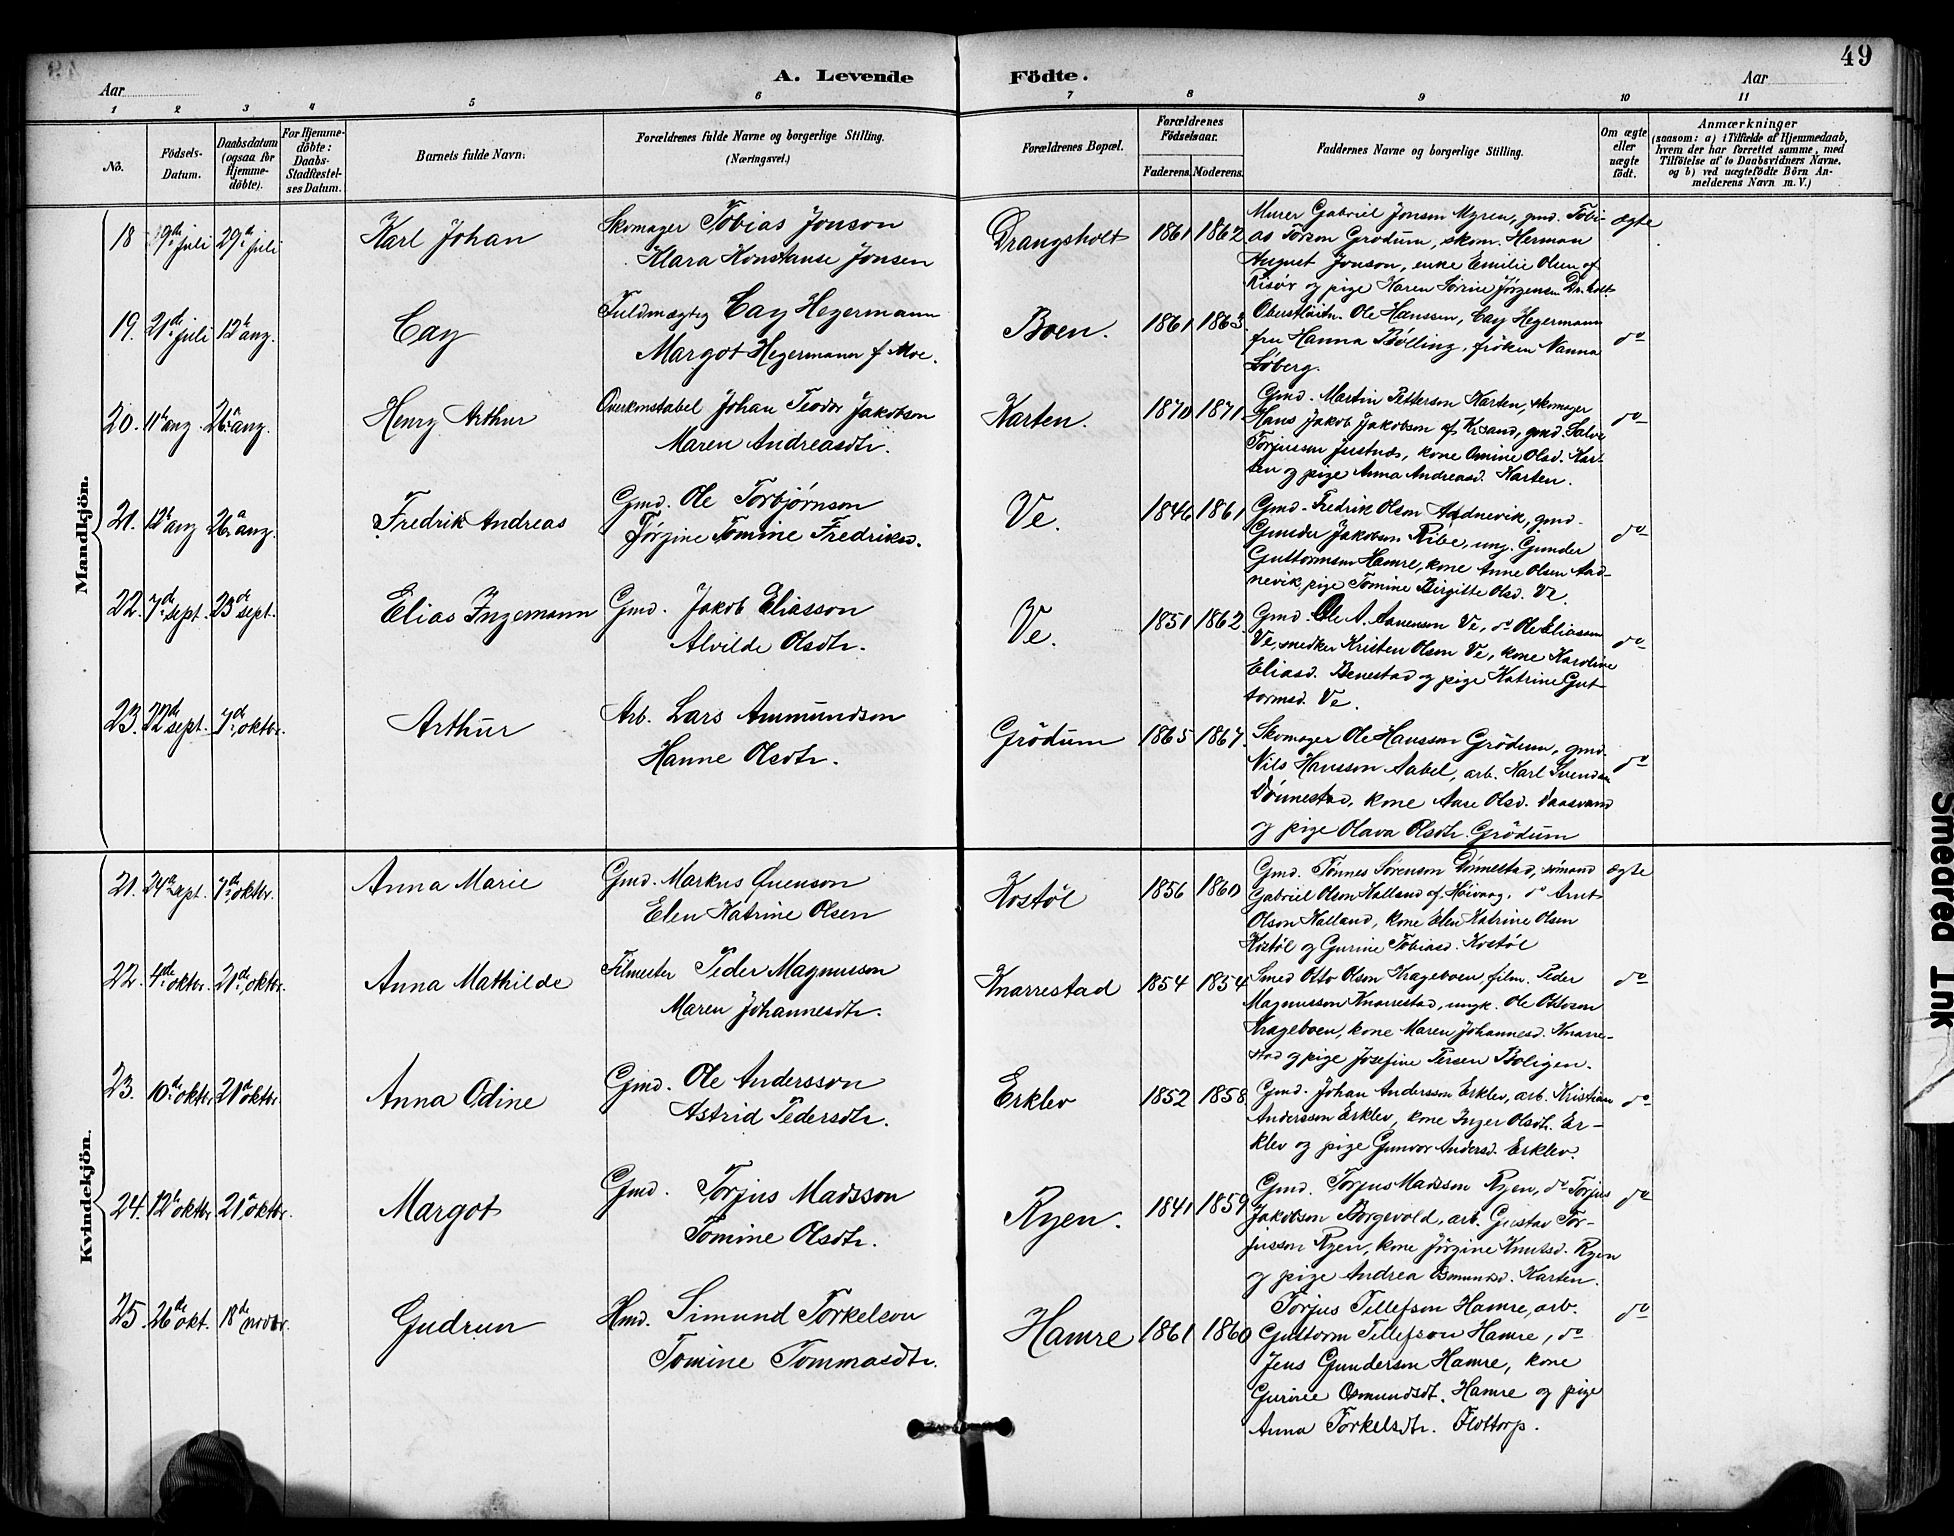 49
Aar
A. Levende
Födte.
Aar
1 2 3 4 5 6 7 8 9 10 11
No.
Födsels-
Datum.
Daabsdatum
(ogsaa for
Hjemme-
döbte).
For Hjemme-
döbte:
Daabs-
Stadfæstel-
ses Datum.
Barnets fulde Navn.
Forældrenes fulde Navne og borgerlige Stilling.
(Næringsvei.)
Forældrenes Bopæl.
Forældrenes
Födselsaar.
Faderens. Moderens.
Faddernes Navne og borgerlige Stilling.
Om ægte
eller
uægte
födt.
Anmærkninger
(saasom: a) i Tilfælde af Hjemmedaab,
hvem der har forrettet samme, med
Tilföielse af to Daabsvidners Navne.
og b) ved uægtefödte Börn An-
melderens Navn m. V.)
Mandkjön.
18 9de juli 29de juli Karl Johan
Skomager Tobias Jonson
Klara Konstanse Jonsen
Drangsholt 1861 1862
Murer Gabriel Jonsen Myren, gmd. Tobi-
as Grødum, skom. Herman
August Jonson, enke Emilie Olsen af
Risør og pige Karen Jørgensen Dr.holt.
ægte
19. 21de juli 12te aug. Cay
Fuldmægtig Cay Hegermann
Margot Hegermann f. Moe.
Boen. 1861 1863.
Oberstløitn. Ole Hanssen, Cay Hegermann
fru Hanna Bølling, frøken Nanna
Søberg.
do
20. 11te aug. 26de aug. Henry Arthur
Overkonstabel Johan Teodor Jakobson
Maren Andreasdtr.
Karten. 1870 1871.
Gmd. Martin Petterson Karten, skomager
Hans Jakob Jakobson af Krsand, gmd. Salve
Torjusson Justnæs, kone Omine Olsd. Kar-
ten og pige Anna Andreasd. Karten.
do
21. 12te aug 26de aug. Fredrik Andreas
Gmd. Ole Torbjørnson
Jørgine Tomine Fredriksd.
Ve. 1846 1861
Gmd. Fredrik Olson Aadnevik, gmd.
Gunder Jakobsen Ribe, ung. Gunder
Guttormsen Hamre, kone Anne Olsen Aad-
nevik, pige Tomine Birgitte Olsd. Ve.
do
22. 7de sept. 23de sept. Elias Ingemann
Gmd. Jakob Eliasson
Alvilde Olsdtr.
Ve. 1851 1862.
Gmd. Ole A. Aanensen Ve, do Ole Eliassen
Ve, snedker Kristen Olsen Ve, kone Karoline
Eliasd. Benestad og pige Katrine Gut-
tormsd. Ve.
do
23. 22de sept. 7de oktbr. Arthur
Arb. Lars Ammundson
Hanne Olsdtr.
Grödum 1865 1867.
Skomager Ole Hansson Grödum, gmd.
Nils Hansson Aabel, arb. Karl Svendsen
Dønnestad, kone Aase Olsd. Daasvand
og pige Olava Olsdtr. Grödum
do
Kvindekjön.
21. 24de sept. 7de oktbr. Anna Marie
Gmd. Markus Evenson
Elen Katrine Olsen
Kostøl 1856 1860
Gmd. Tønnes Sørenson Dønnestad, sømand
Gabriel Olson Kalland af Høivaag, do Arnt
Olson Kalland, kone Elen Katrine Olsen
Kostøl og Gurine Tobiasd. Kostøl
ægte
22. 4de oktbr. 21de oktbr. Anna Mathilde
Filmester Peder Magnusson
Maren Johannesdtr.
Knarrestad 1854 1854
Smed Otto Olson Krageboen, film. Peder
Magnusson Knarrestad, ungk. Ole Ottosen
Krageboen, kone Maren Johannesd. Knarre-
stad og pige Josefine Persen Boligen.
do
23. 10de oktbr 21de oktbr. Anna Odine
Gmd. Ole Andersson
Astrid Pedersdtr.
Erklev 1852 1858
Gmd. Johan Andersson Erklev, arb. Kristian
Andersson Erklev, kone Inger Olsdtr. Er-
klev og pige Gunvor Andersd. Erklev.
do
24. 12te oktbr. 21de oktbr. Margot
Gmd. Torjus Madsson
Tomine Olsdtr.
Ryen. 1841 1859
Gmd. Torjus Madsson Ryen, do Torjus
Jakobson Borgevold, arb. Gustav Tor-
jusson Ryen, kone Jørgine Knutsd. Ryen
og pige Andrea Karten.
do
25. 26de okt. 18de novbr. Gudrun
Hmd. Simund Torkelson
Tomine Tommasdtr.
Hamre 1861 1860
Torjus Tellefson Hamre, arb.
Guttorm Tellefson Hamre, do
Jens Gunderson Hamre, kone
Gurine Osmundsdt. Hamre og pige
Anna Torkelsdtr. Flottorp.
do
Smeared Ink